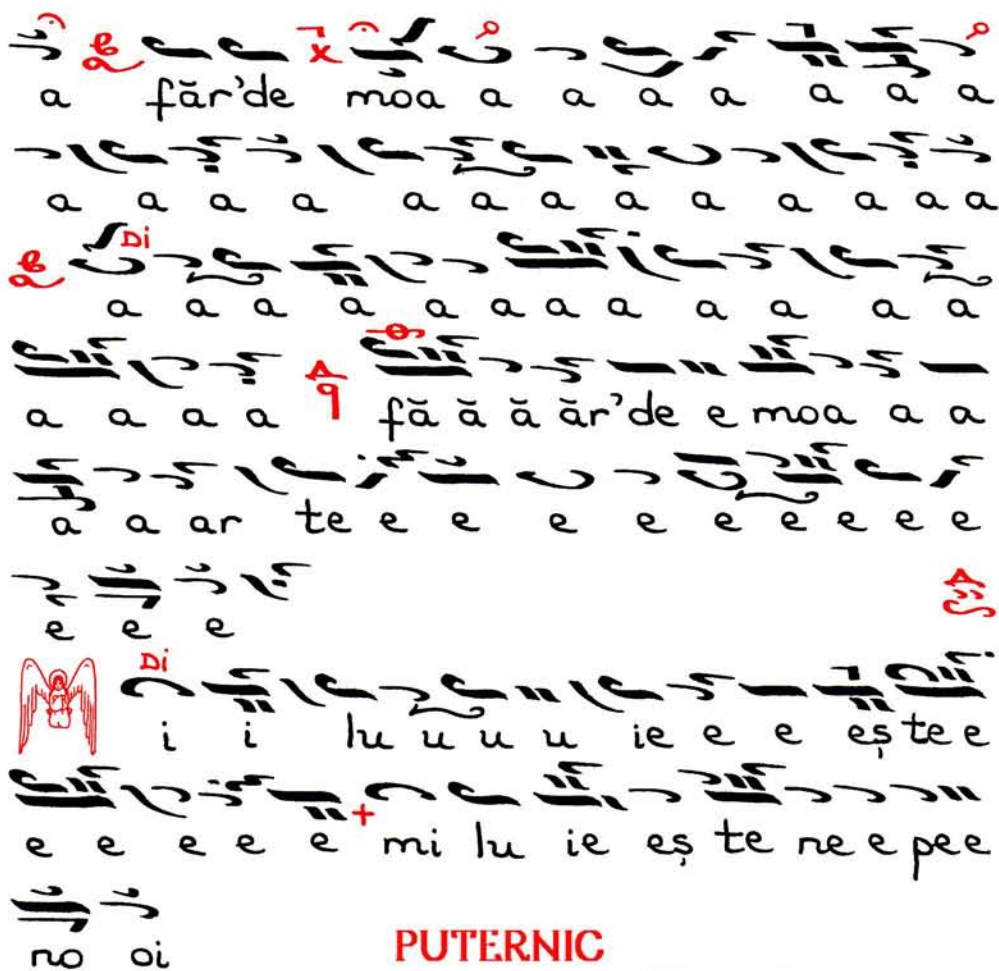 a făr'de moa a a a a a a a
a a a a a a a a a a a a a
Di
a a a a a a a a a a a a
a a a a fă ă ă ăr'de e moa a a
a a ar te e e e e e e e e e
e e e
Di
i i lu u u u ie e e eș te e
e e e e e mi lu ie eș te ne e pe e
no oi
PUTERNIC